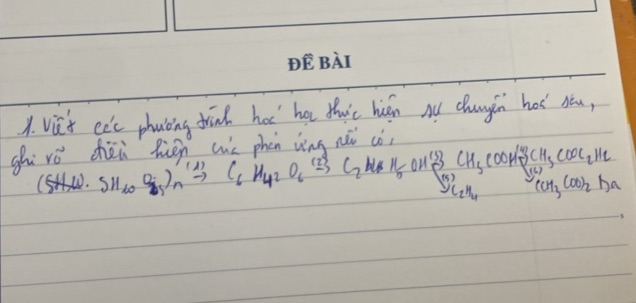 ĐỀ BÀI
1. Viết các phương trình hoá học thực hiện sự chuyển hoá sau,
ghi rõ điều kiện của phản ứng nếu có,
(1) C6 H12 O6 (2) C2 H5 OH (3) CH3 COOH (4) CH3 COOC2 H5
(5) C2H4 (6) (CH3 COO)2 Ba